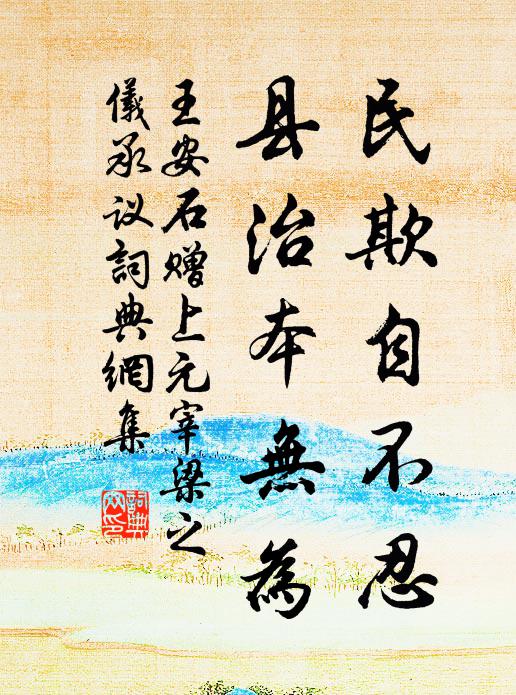 民欺自不忍
县治本無為
王安石赠上元宰梁之
儀承议詞典網集
詞典
网印